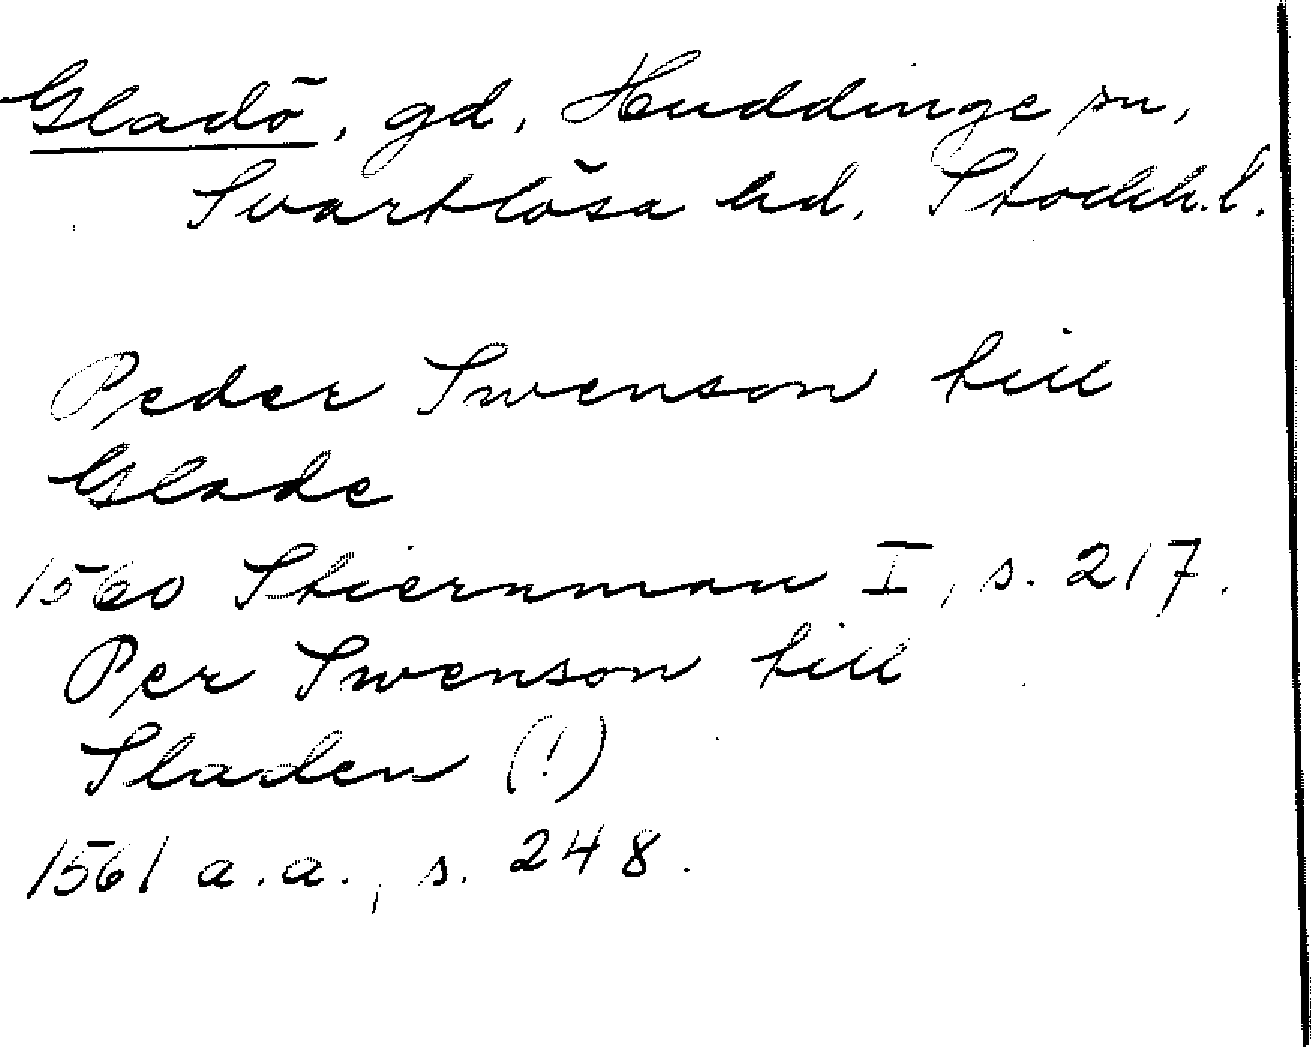 Gladö, gd, Huddinge sn,
Svartlösa hd. Stockh.l.
Peder Swenson till
Glade
1560 Stiernman I, s. 217.
Per Swenson till
Sladen (!)
1561 a.a., s. 248.